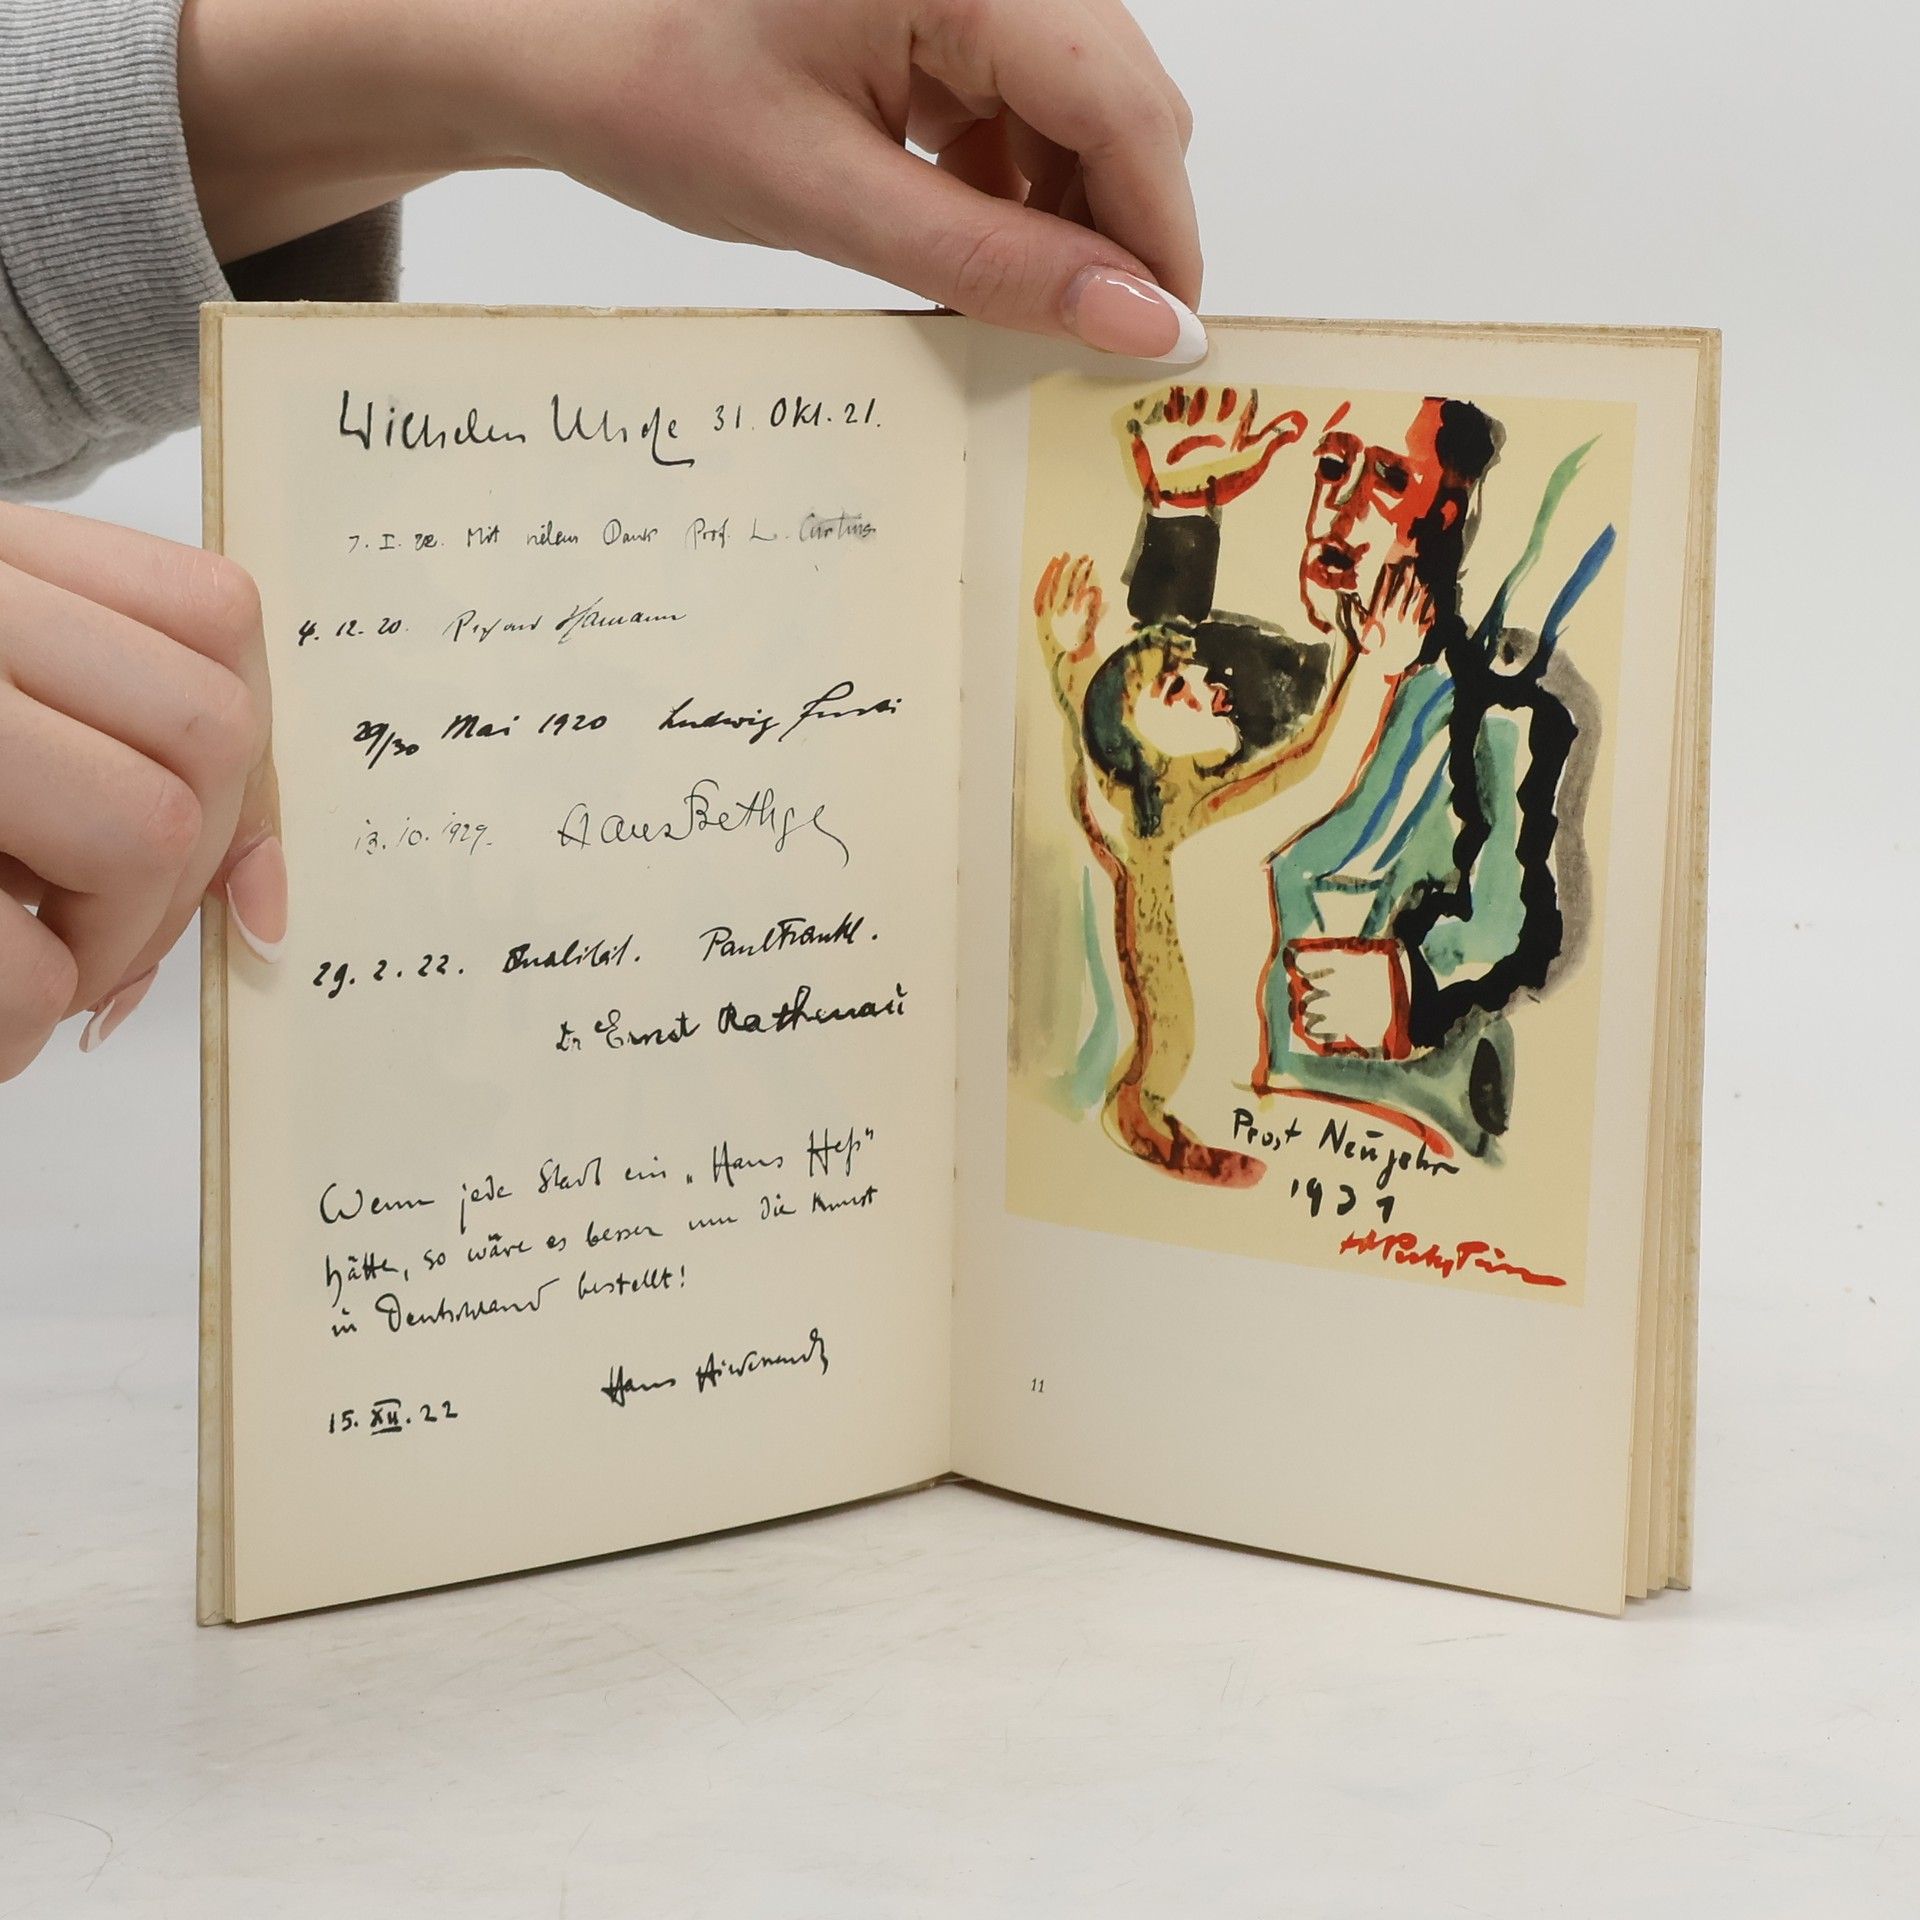 Wilhelm Uhde 31. Okt. 21.
7. I. 22. Mit vielem Dank Prof. L. Curtius
4. 12. 20. Richard Hamann
29/30 Mai 1920 Ludwig Justi
13. 10. 1929. Hans Bethge
29. 2. 22. Qualität. Paul Frankl.
Dr Ernst Rathenau
Wenn jede Stadt ein „Hans Heß"
hätte, so wäre es besser um die Kunst
in Deutschland bestellt!
Hans Hildebrandt
15. XII. 22
Prost Neujahr
1931
HMPechstein
11